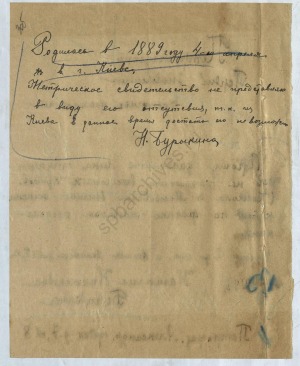 Родилась в 1889 году 4-го апреля
в г. Киеве.
Метрическое свидетельство не представляю
в виду его отсутствия, т.к. из
Киева в данное время достать не возможно
Н. Бурыкина
spbarchives